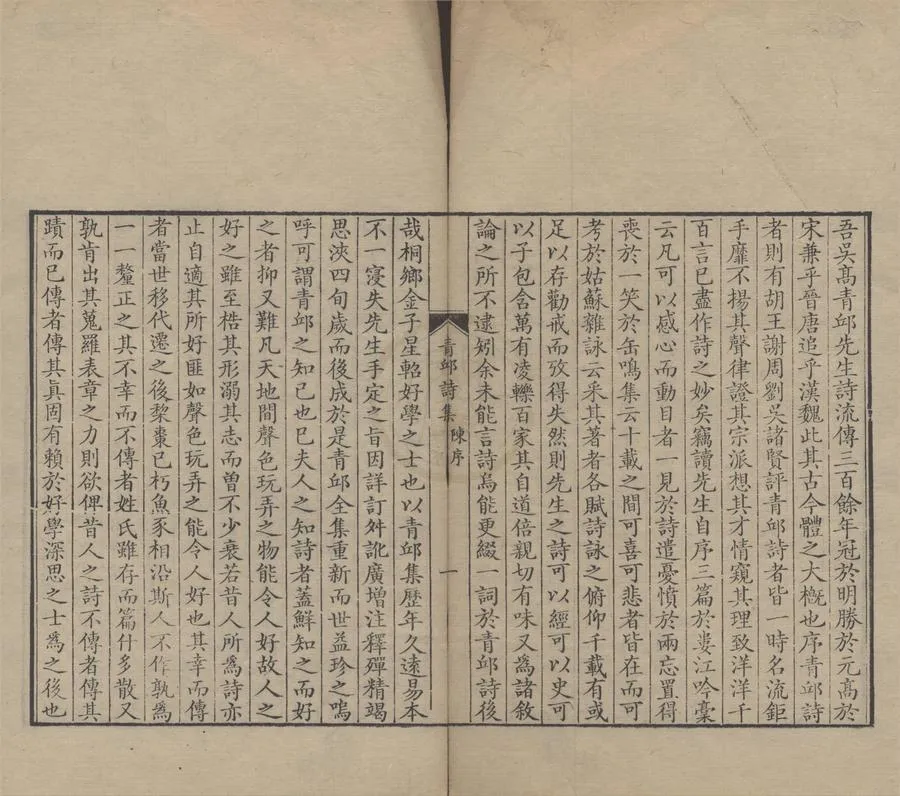 吾吳高青邱先生詩流傳三百餘年冠於明勝於元高於
宋兼乎晉唐追乎漢魏此其古今體之大槪也序青邱詩
者則有胡王謝周劉吳諸賢評青邱詩者皆一時名流鉅
手靡不揚其聲律證其宗派想其才情窺其理致洋洋千
百言已盡作詩之妙矣竊讀先生自序三篇於婁江吟藁
云凡可以感心而動目者一見於詩遣憂憤於兩忘置得
喪於一笑於缶鳴集云十載之間可喜可悲者皆在而可
考於姑蘇雜詠云采其著者各賦詩詠之俯仰千載有或
足以存勸戒而攷得失然則先生之詩可以經可以史可
以子包含萬有凌轢百家其自道倍親切有味又為諸敘
論之所不逮矧余未能言詩焉能更綴一詞於青邱詩後
青邱詩集
陳序
一
哉桐鄉金子星軺好學之士也以青邱集歷年久遠易本
不一寖失先生手定之旨因詳訂舛訛廣增注釋殫精竭
思浹四旬歲而後成於是青邱全集重新而世益珍之嗚
呼可謂青邱之知己也已夫人之知詩者蓋鮮知之而好
之者抑又難凡天地間聲色玩弄之物能令人好故人之
好之雖至梏其形溺其志而曾不少衰若昔人所為詩亦
止自適其所好匪如聲色玩弄之能令人好也其幸而傳
者當世移代遷之後棃棗已朽魚豕相沿斯人不作孰為
一一釐正之其不幸而不傳者姓氏雖存而篇什多散又
孰肯出其蒐羅表章之力則欲俾昔人之詩不傳者傳其
蹟而已傳者傳其真固有賴於好學深思之士為之後也